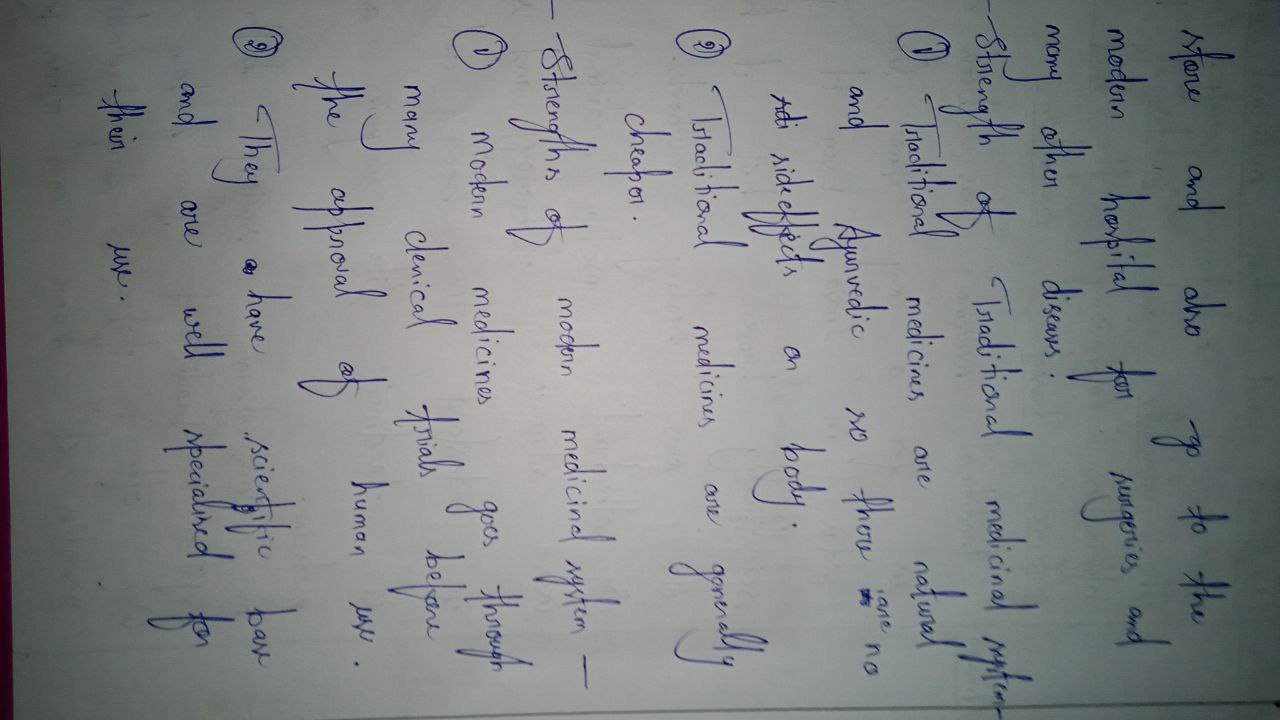 store and also go to the
modern hospital for surgeries and
many other diseases.
- Strength of Traditional medicinal system-
① Traditional medicines are natural
and Ayurvedic so there are no
side effects on body.
② Traditional medicines are generally
cheaper.
- Strengths of modern medicinal system -
① Modern medicines goes through
many clenical trials before
the approval of human use.
② They have scientific base
and are well specialised for
their use.